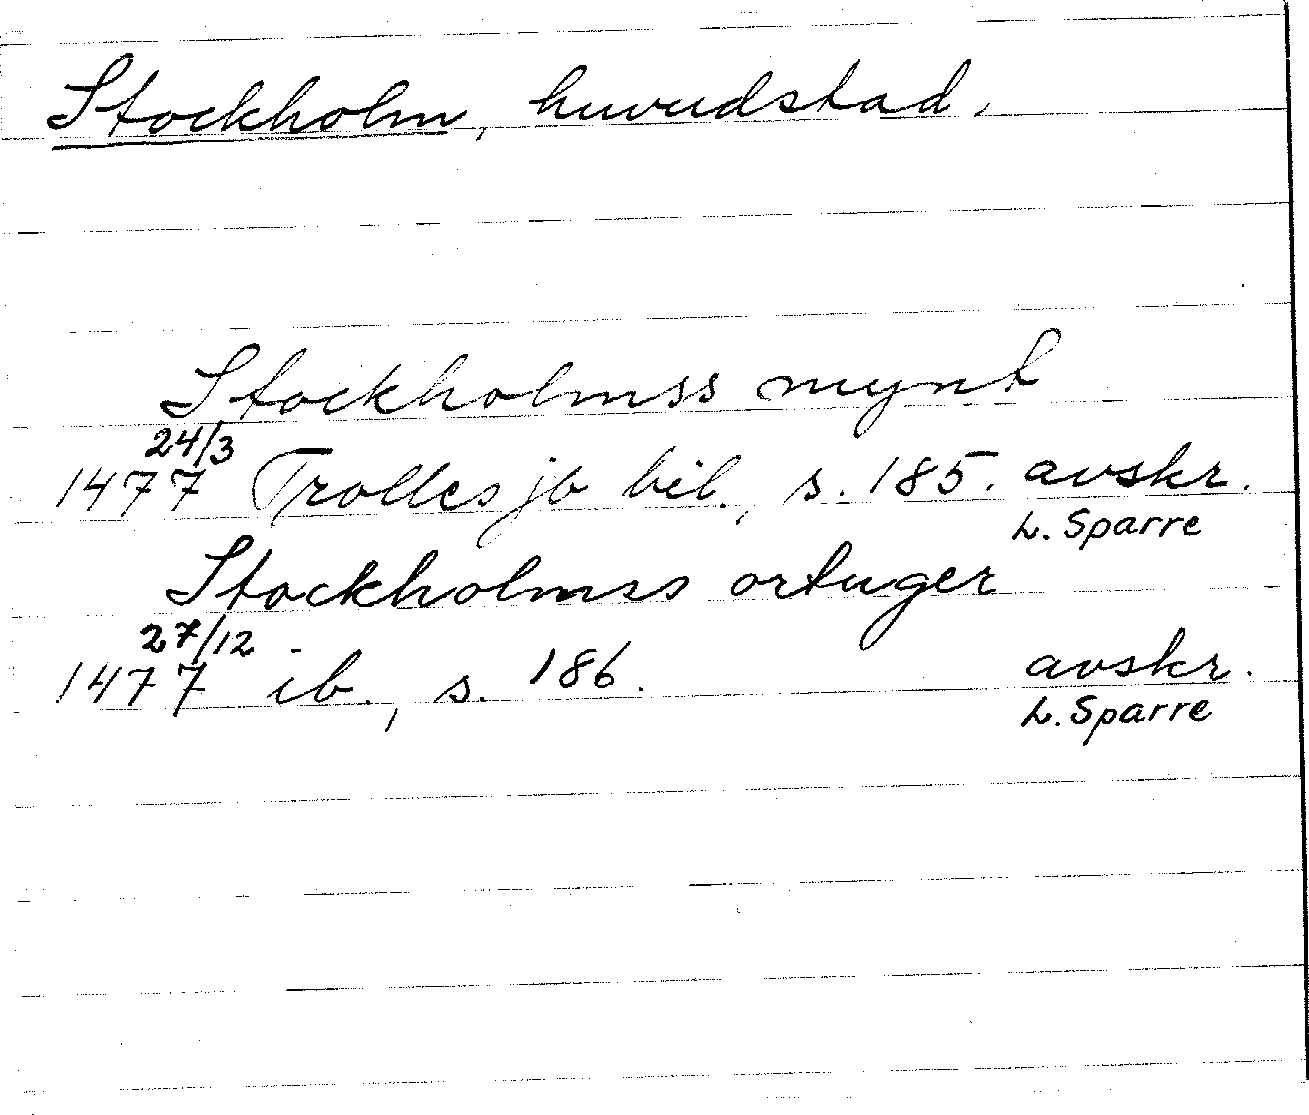 Stockholm, huvudstad.
Stockholmss mynt
24/3
1477 Trolles jb bil., s. 185. avskr.
L. Sparre
Stockholmss ortuger
27/12
1477 ib., s. 186. avskr.
L. Sparre